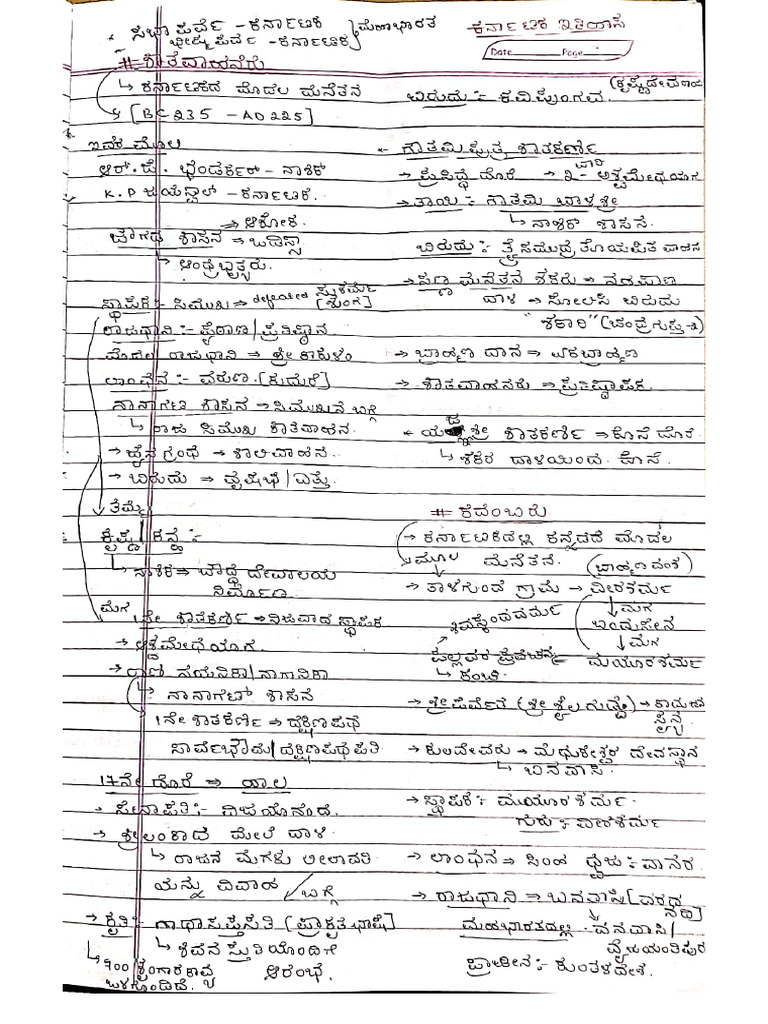 ಕರ್ನಾಟಕ ಇತಿಹಾಸ
Date Page
ಸಭಾ ಪರ್ವ - ಕರ್ನಾಟಕ } ಮಹಾಭಾರತ
ಭೀಷ್ಮ ಪರ್ವ - ಕರ್ನಾಟಕ
# ಶಾತವಾಹನರು
↳ ಕರ್ನಾಟಕದ ಮೊದಲ ಮನೆತನ
↳ [BC 235 - AD 225]
ಇವರ ಮೂಲ
ಆರ್.ಜಿ. ಭಂಡರ್ಕರ್ - ನಾಶಿಕ್
K.P ಜಯಸ್ವಾಲ್ - ಕರ್ನಾಟಕ.
⇒ ಅಶೋಕ.
ಜೌಗಢ ಶಾಸನ ⇒ ಒಡಿಸ್ಸಾ
↳ ಆಂಧ್ರಭೃತ್ಯರು.
ಸ್ಥಾಪಕ :- ಸಿಮುಖ ⇒ defeated ಸುಶರ್ಮ [ಶುಂಗ]
ರಾಜಧಾನಿ :- ಪೈಠಾಣ / ಪ್ರತಿಷ್ಠಾನ
ಮೊದಲ ರಾಜಧಾನಿ ⇒ ಶ್ರೀಕಾಕುಳಂ
ಲಾಂಛನ :- ವರುಣ [ಕುದುರೆ]
ನಾನಾಗಟ ಶಾಸನ ⇒ ಸಿಮುಖನ ಬಗ್ಗೆ
↳ ರಾಜ ಸಿಮುಖ ಶಾತವಾಹನ.
→ ಜೈನಗ್ರಂಥ ⇒ ಶಾಲಿವಾಹನ.
→ ಬಿರುದು ⇒ ವೃಷಭ / ಎತ್ತು.
→ ತಮ್ಮ
ಕೃಷ್ಣ / ಕನ್ಹ
↳ ನಾಶಿಕ ⇒ ಬೌದ್ಧ ದೇವಾಲಯ
ನಿರ್ಮಾಣ
ಮಗ
1ನೇ ಶಾತಕರ್ಣಿ ⇒ ನಿಜವಾದ ಸ್ಥಾಪಕ
→ ಅಶ್ವಮೇಧಯಾಗ.
→ ರಾಣಿ ನಯನಿಕಾ / ನಾಗಾನಿಕಾ
↳ ನಾನಾಗಟ್ ಶಾಸನ
1ನೇ ಶಾತಕರ್ಣಿ ⇒ ದಕ್ಷಿಣಪಥ
ಸಾರ್ವಭೌಮ / ದಕ್ಷಿಣಪಥಪತಿ
17ನೇ ದೊರೆ ⇒ ಹಾಲ
ಸೇನಾಪತಿ :- ವಿಜಯನಂದ.
→ ಶ್ರೀಲಂಕಾದ ಮೇಲೆ ದಾಳಿ
↳ ರಾಜನ ಮಗಳು ಲೀಲಾವತಿ
ಯನ್ನು ವಿವಾಹ ಬಗ್ಗೆ
→ ಕೃತಿ :- ಗಾಥಾಸಪ್ತಸತಿ (ಪ್ರಾಕೃತಭಾಷೆ)
↳ ಶಿವನ ಸ್ತುತಿಯೊಂದಿಗೆ
ಆರಂಭ.
↳ 700 ಶೃಂಗಾರ ಕಾವ್ಯ
ಒಳಗೊಂಡಿದೆ.
ಬಿರುದು :- ಕವಿಪುಂಗವ. (ಕೃಷ್ಣದೇವರಾಯ
ಗೌತಮಿಪುತ್ರ ಶಾತಕರ್ಣಿ
→ ಪ್ರಸಿದ್ಧ ದೊರೆ → 2 - ಬಾರಿ ಅಶ್ವಮೇಧಯಾಗ
→ ತಾಯಿ :- ಗೌತಮಿ ಬಾಳಶ್ರೀ
↳ ನಾಶಿಕ್ ಶಾಸನ.
ಬಿರುದು :- ತ್ರೈಸಮುದ್ರ ತೋಯಪಿತ ವಾಹನ
→ ಸಣ್ಣ ಮನೆತನ ಶಕರು ⇒ ನಹಪಾಣ
ದಾಳಿ → ಸೋಲಿಸಿ ಬಿರುದು
"ಶಕಾರಿ" (ಚಂದ್ರಗುಪ್ತ-2)
→ ಬ್ರಾಹ್ಮಣ ದಾನ ⇒ ಏಕಬ್ರಾಹ್ಮಣ
→ ಶಾತವಾಹನರು ⇒ ಪ್ರತಿಷ್ಠಾಪಕ.
ಯಜ್ಞಶ್ರೀ ಶಾತಕರ್ಣಿ ⇒ ಕೊನೆ ದೊರೆ
↳ ಶಕರ ದಾಳಿಯಿಂದ ಕೊನೆ.
# ಕದಂಬರು
→ ಕರ್ನಾಟಕದಲ್ಲಿ ಕನ್ನಡದ ಮೊದಲ
ಮೂಲ ಮನೆತನ. (ಬ್ರಾಹ್ಮಣ ವಂಶ)
→ ತಾಳಗುಂದ ಗ್ರಾಮ → ವೀರಶರ್ಮ
↓ ಮಗ
ಬಂಧುಸೇನ
↓ ಮಗ
ಶಿವಸ್ಕಂದವರ್ಮ
ಪಲ್ಲವರ ← ಮಯೂರಶರ್ಮ
↳ ಕಂಚಿ.
→ ಶ್ರೀಪರ್ವತ (ಶ್ರೀಶೈಲಗುಡ್ಡ) →
ಸೈನ್ಯ
→ ಕುಲದೇವರು → ಮಧುಕೇಶ್ವರ ದೇವಸ್ಥಾನ
↳ ಬನವಾಸಿ
→ ಸ್ಥಾಪಕ :- ಮಯೂರಶರ್ಮ.
ಗುರು :- ವೀರಶರ್ಮ
→ ಲಾಂಛನ ⇒ ಸಿಂಹ ಧ್ವಜ :- ವಾನರ
→ ರಾಜಧಾನಿ ⇒ ಬನವಾಸಿ [ವರದಾ ನದಿ]
ಮಹಾಭಾರತದಲ್ಲಿ - ವನವಾಸಿ /
ವೈಜಯಂತಿಪುರ
ಪ್ರಾಚೀನ :- ಕುಂತಳದೇಶ.